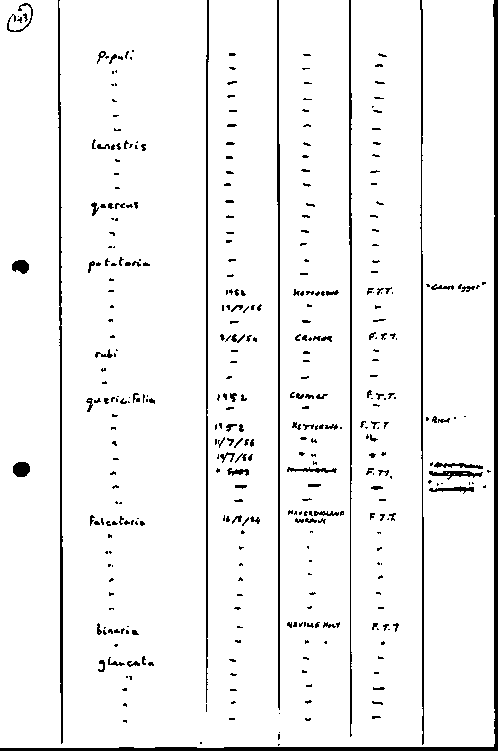 143
Populi — — —
" — — —
" — — —
" — — —
" — — —
" — — —
lanestris — — —
" — — —
" — — —
" — — —
quercus — — —
" — — —
" — — —
" — — —
potatoria — — —
" — — —
" 1952 KETTERING F.T.T.
" 19/7/56
" — — —
" 9/8/54 CROMER F.T.T.
rubi — — —
" — — —
quercifolia 1952 CROMER F.T.T.
" — — —
" 1952 KETTERING. F.T.T
" 11/7/56 " " " "
" 19/7/56 " " " "
" F.T.T.
" — — —
" — — —
Falcataria 16/8/54 F.T.T.
" " " "
" " " "
" " " "
" " " "
" " " "
" — — —
binaria " NEVILLE HOLT F.T.T
" " " " "
glaucata — — —
" — — —
" — — —
" — — —
" — — —